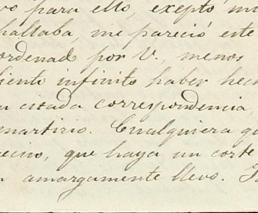 vo para ello, exepto mi
hallaba, me pareció este
ordenad por V., menos
iento infinito haber hec
u citada correspondencia,
martirio. Cualquiera qu
ecino, que haya un corte
n amargamente llevo.